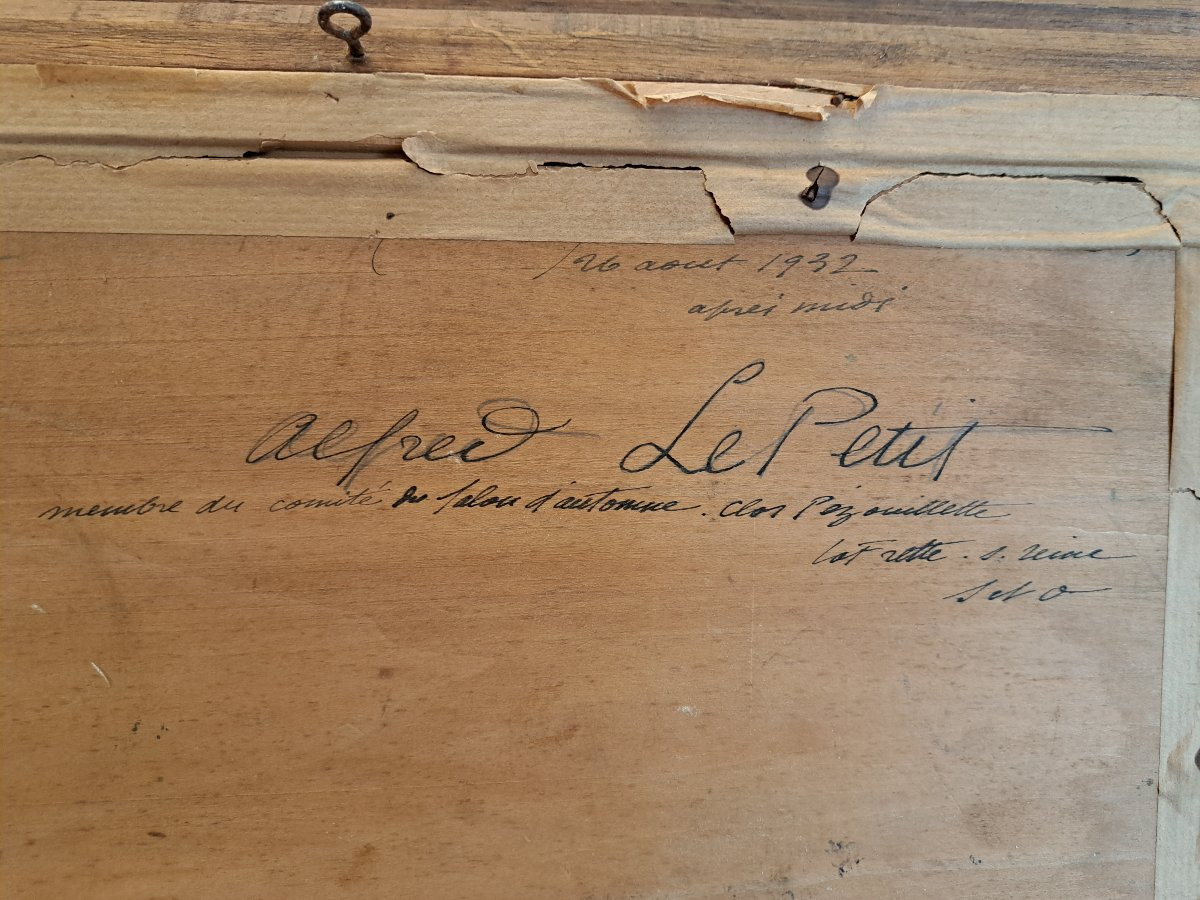 26 aout 1932
apres midi
Alfred Le Petit
membre du comité du Salon d'automne. Clos Pézouillette
La Frette. s. seine
S et O